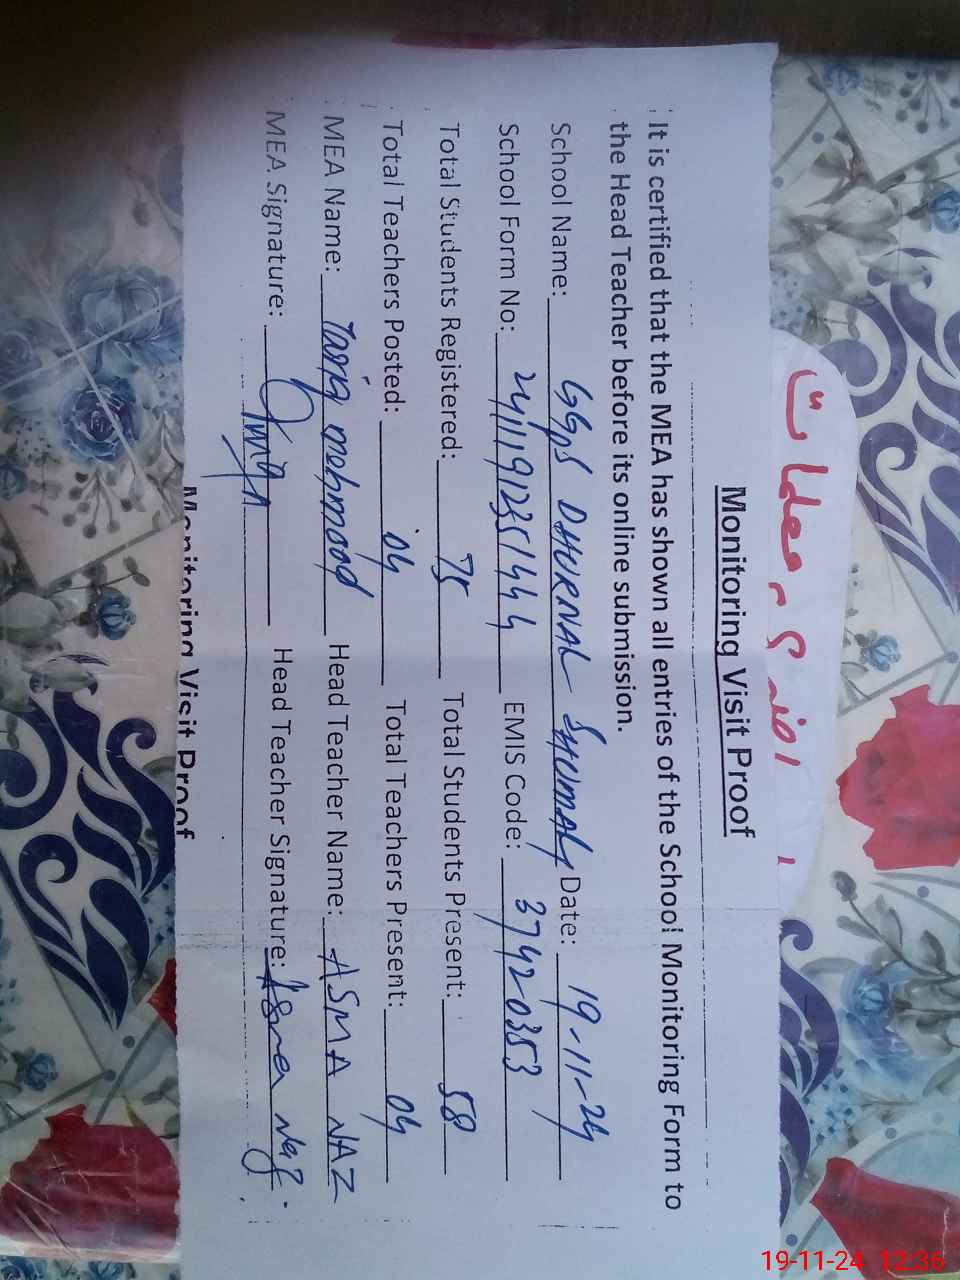 اضافی معلومات
Monitoring Visit Proof
It is certified that the MEA has shown all entries of the School Monitoring Form to
the Head Teacher before its online submission.
School Name: GGPS DHURNAL SHUMALY Date: 19-11-24
School Form No: 24111912351444 EMIS Code: 37420353
Total Students Registered: 75 Total Students Present: 58
Total Teachers Posted: 04 Total Teachers Present: 04
MEA Name: Tariq mehmood Head Teacher Name: ASMA NAZ
MEA Signature: Head Teacher Signature: Asma Naz.
Monitoring Visit Proof
19-11-24 12:36